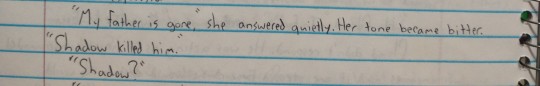 "My father is gone," she answered quietly. Her tone became bitter.
"Shadow killed him."
"Shadow?"